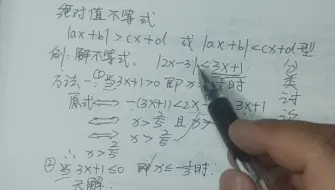 绝对值不等式
|ax+b|>cx+d 或 |ax+b|<cx+d型
例：解不等式 |2x-3|<3x+1
方法一 ①当3x+1>0 即 时
原式⟺ -(3x+1)<2x- 3x+1
⟺ x>2/5 且 x>
⟺ x>2/5
∴ x>2/5
②当3x+1≤0 即x≤-1/3时：
无解.
分
类
讨
论